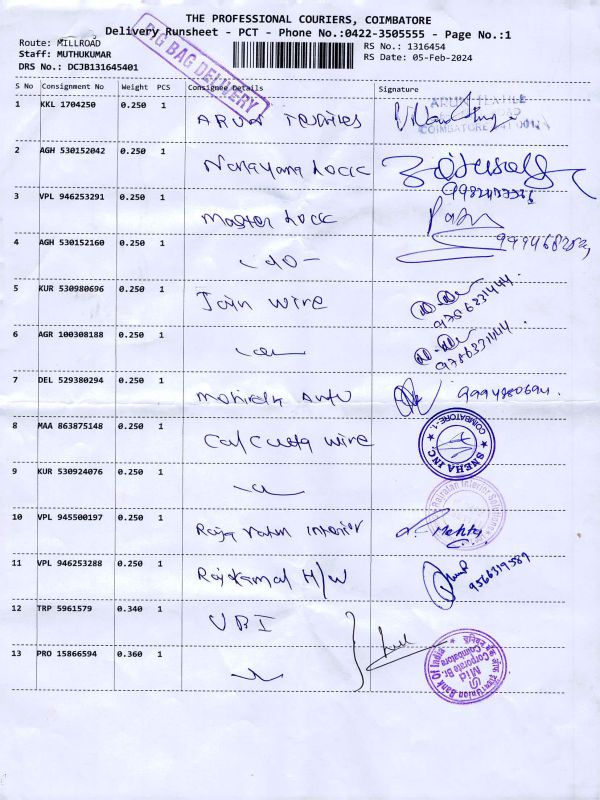 THE PROFESSIONAL COURIERS, COIMBATORE
Delivery Runsheet - PCT - Phone No.:0422-3505555 - Page No.:1
Route: MILLROAD
Staff: MUTHUKUMAR
DRS No.: DCJB131645401
RS No.: 1316454
RS Date: 05-Feb-2024
BIG BAG DELIVERY
S No Consignment No Weight PCS Consignee Details Signature
1 KKL 1704250 0.250 1 ARUN Textiles
ARUN TEXTILE
COIMBATORE
2 AGH 530152042 0.250 1 Narayana Lock
3 VPL 946253291 0.250 1 Master Lock
4 AGH 530152160 0.250 1 -do-
5 KUR 530980696 0.250 1 Jain wire 9786331444
6 AGR 100308188 0.250 1 9786331444
7 DEL 529380294 0.250 1 Auto 9994980694
8 MAA 863875148 0.250 1 Calcutta wire
SNEHA INC. COIMBATORE-1
9 KUR 530924076 0.250 1
Rajratan Interior Solutions
10 VPL 945500197 0.250 1 Raj ratan interior Mehta
11 VPL 946253288 0.250 1 Rajkamal H/W 9566319589
12 TRP 5961579 0.340 1 UBI
13 PRO 15866594 0.360 1
Union Bank Of India
Mid Corporate Br.
Coimbatore